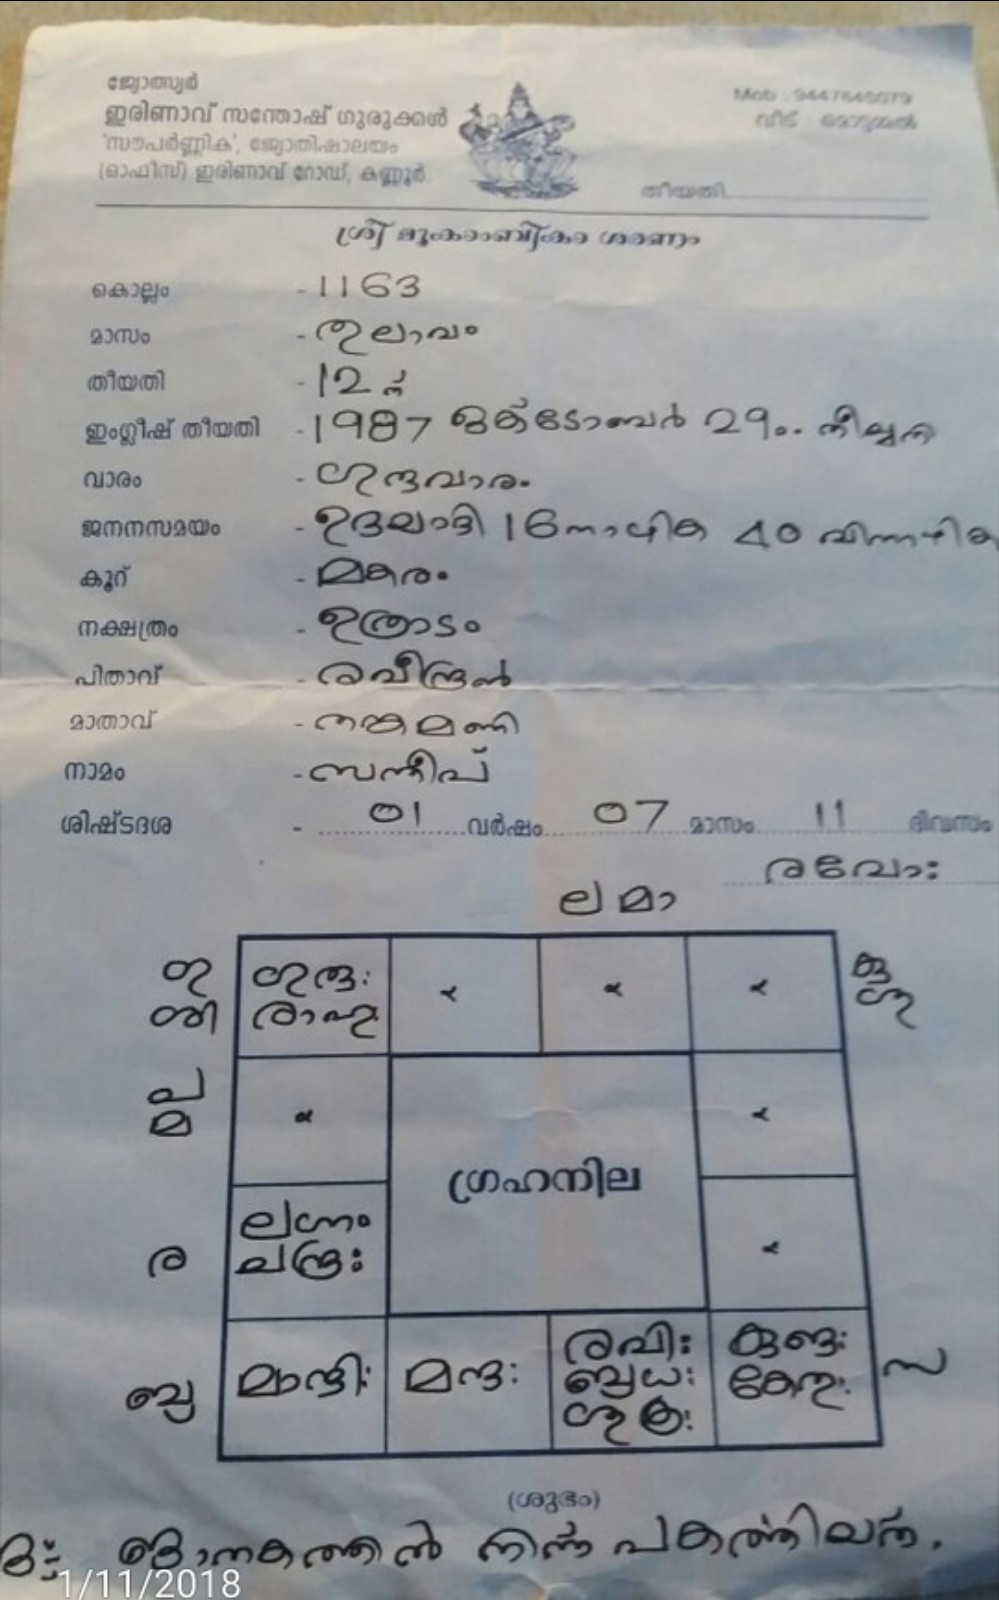 ജ്യോത്സ്യർ
ഇരിണാവ് സന്തോഷ് ഗുരുക്കൾ
'സൗപർണ്ണിക', ജ്യോതിഷാലയം
(ഓഫീസ്) ഇരിണാവ് റോഡ്, കണ്ണൂർ.
Mob : 9447645079
വീട് :
തീയതി
ശ്രീ മൂകാംബികാ ശരണം
കൊല്ലം - 1163
മാസം - തുലാവം
തീയതി - 12 ന്
ഇംഗ്ലീഷ് തീയതി - 1987 ഒക്ടോബർ 29ം.
വാരം - ഗുരുവാരം
ജനനസമയം - ഉദയാദി 16 നാഴിക 40 വിനാഴിക
കൂറ് - മകരം
നക്ഷത്രം - ഉത്രാടം
പിതാവ് - രവീന്ദ്രൻ
മാതാവ് - തങ്കമണി
നാമം - സന്ദീപ്
ശിഷ്ടദശ - 01 വർഷം 07 മാസം 11 ദിവസം
രവോഃ
ല മാ
ഗു
ശി
ഗുരുഃ
രാഹു
കു
ശു
ച
മ
ഗ്രഹനില
ലഗ്നം
ചന്ദ്രഃ
ര
ബു
മാന്ദിഃ
മന്ദഃ
രവിഃ
ബുധഃ
ശുക്രഃ
കുജഃ
കേതുഃ
സ
(ശുഭം)
ജാതകത്തിൽ നിന്ന് പകർത്തിയത്.
1/11/2018